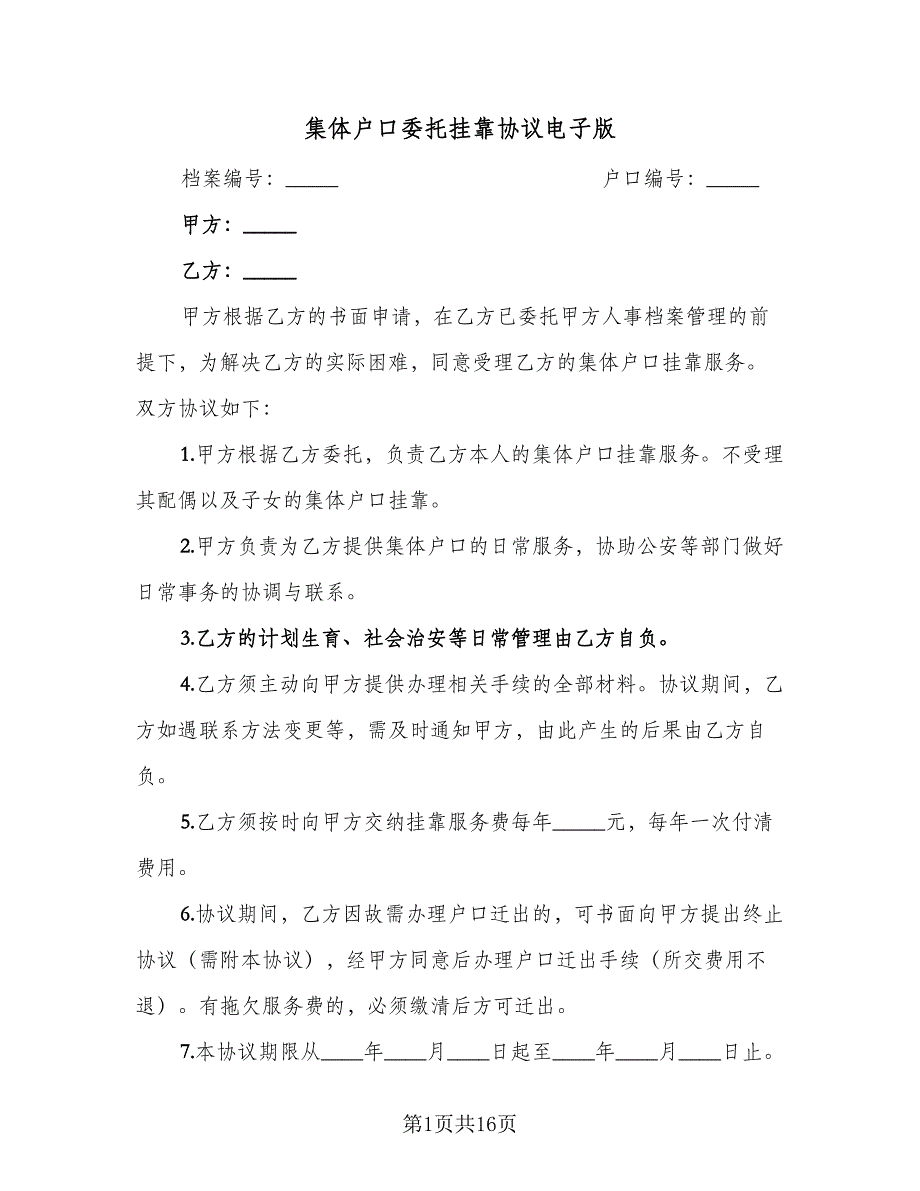 集体户口委托挂靠协议电子版
档案编号：_____ 户口编号：_____
甲方：_____
乙方：_____
甲方根据乙方的书面申请，在乙方已委托甲方人事档案管理的前
提下，为解决乙方的实际困难，同意受理乙方的集体户口挂靠服务。
双方协议如下：
1.甲方根据乙方委托，负责乙方本人的集体户口挂靠服务。不受理
其配偶以及子女的集体户口挂靠。
2.甲方负责为乙方提供集体户口的日常服务，协助公安等部门做好
日常事务的协调与联系。
3.乙方的计划生育、社会治安等日常管理由乙方自负。
4.乙方须主动向甲方提供办理相关手续的全部材料。协议期间，乙
方如遇联系方法变更等，需及时通知甲方，由此产生的后果由乙方自
负。
5.乙方须按时向甲方交纳挂靠服务费每年_____元，每年一次付清
费用。
6.协议期间，乙方因故需办理户口迁出的，可书面向甲方提出终止
协议（需附本协议），经甲方同意后办理户口迁出手续（所交费用不
退）。有拖欠服务费的，必须缴清后方可迁出。
7.本协议期限从____年____月____日起至____年____月____日止。
第1页共16页